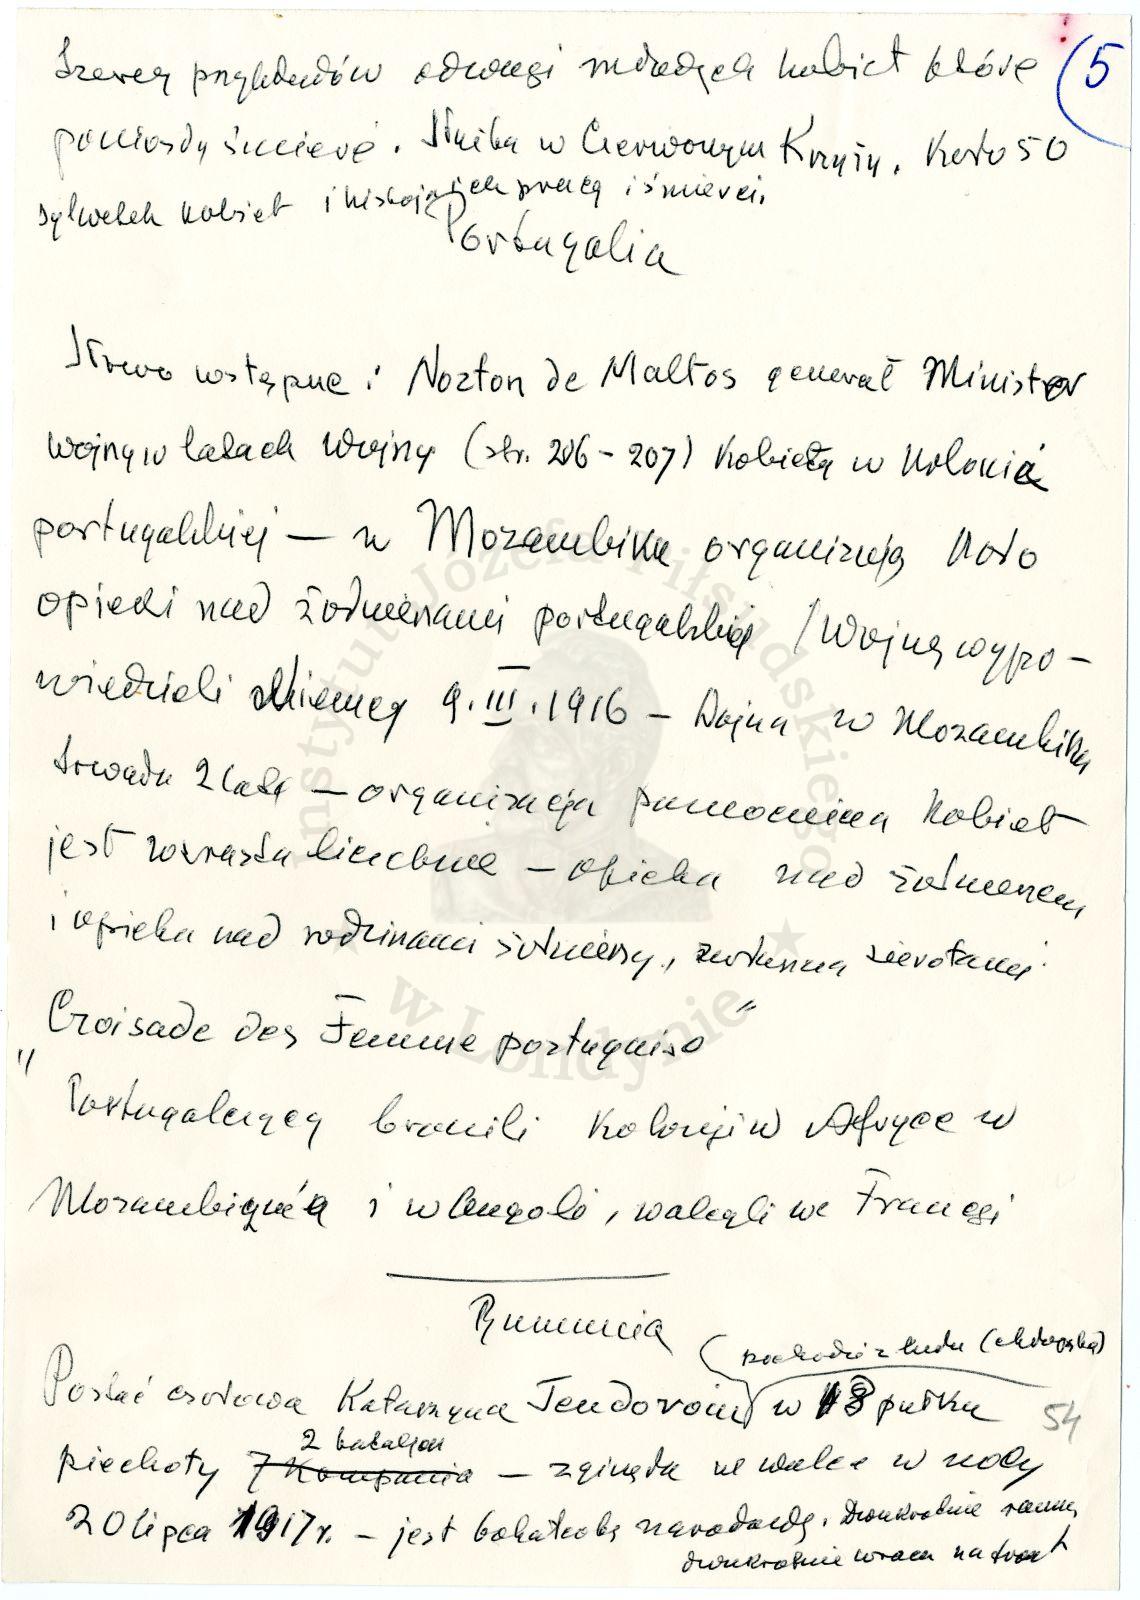 Szereg przykładów odwagi młodych kobiet które
5
poniosły śmierć. Służba w Czerwonym Krzyżu. Koło 50
sylwetek kobiet i historja ich pracy i śmierci.
Portugalia
Słowo wstępne: Norton de Mattos generał Minister
Wojny w latach Wojny (str. 206 - 207) Kobiety w Kolonii
portugalskiej — w Mozambiku organizują Koło
opieki nad żołnierzami portugalskiej / Wojnę wypo-
wiedzieli Niemcy 9.III.1916 - Wojna w Mozambiku
trwała 2 lata - organizacja pomocnicza Kobiet
jest wzrasta liczebnie - opieka nad żołnierzem
i opieka nad rodzinami żołnierzy, zwłaszcza sierotami
"Croisade des Femme portugaiso"
Portugalczycy bronili Kolonji w Afryce w
Mozambique i w Angoli, walczyli we Francji
Rumunia
(pochodzi z ludu (chłopska)
Postać czołowa Katarzyna Teodoroiu w 18 pułku
54
2 bataljon
piechoty 7 Kompania - zginęła w walce w nocy
20 lipca 1917 r. - jest bohaterką narodową. Dwukrotnie ranna,
dwukrotnie wraca na front
Instytut Józefa Piłsudskiego
w Londynie